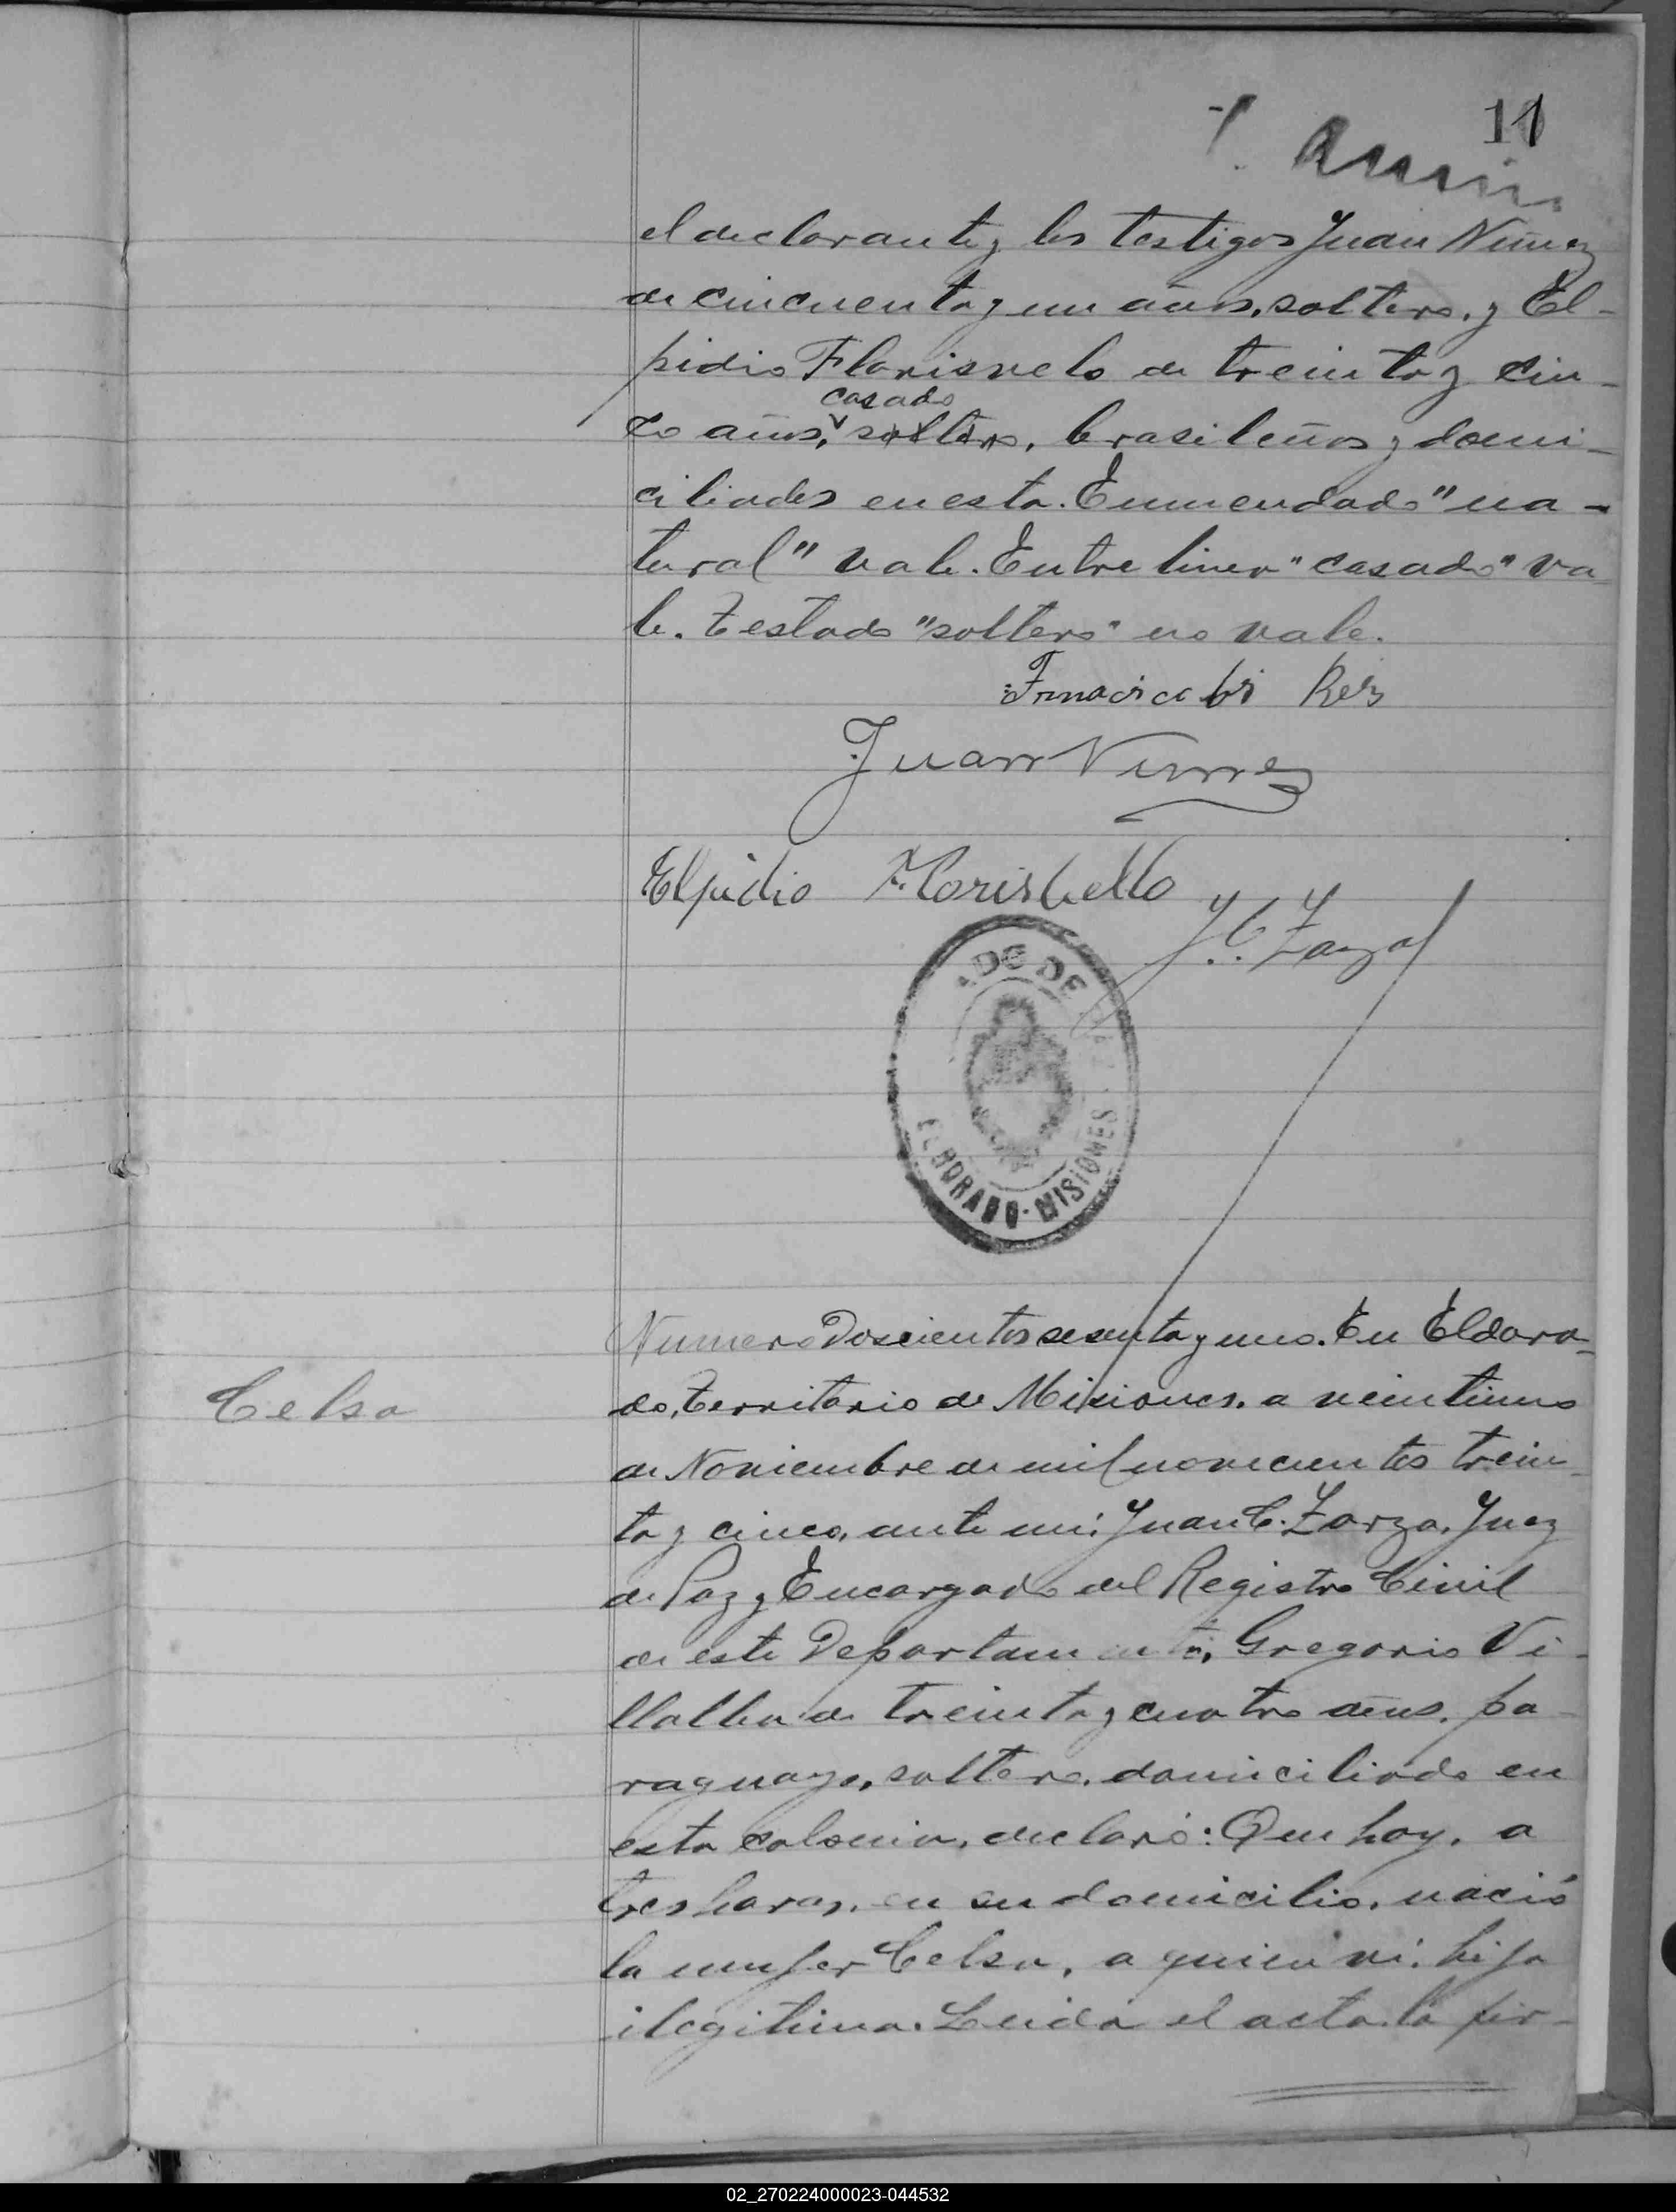 11
el declarante y los testigos Juan Nuñez
de cincuenta y un años, soltero, y El-
pidio Florisvelo de treinta y cin-
casado
co años, soltero, brasileños y domi-
ciliados en esta. Enmendado "na-
tural" vale. Entre linea "casado" va
le. Testado "soltero" no vale.
Reis
Juan Nunez
Elpidio Florisbello
J. C. Zarza
ADO DE PAZ
ELDORADO - MISIONES
Numero Doscientos sesenta y uno. En Eldora-
Celsa
do, Territorio de Misiones, a veintiuno
de Noviembre de mil novecientos trein-
ta y cinco, ante mi: Juan C. Zarza, Juez
de Paz y Encargado del Registro Civil
de este Departamento, Gregorio Vi-
llalba de treinta y cuatro años, pa-
raguayo, soltero, domiciliado en
esta colonia, declaró: Que hoy, a
tres horas, en su domicilio, nació
la mujer Celsa, a quien vi, hija
ilegitima. Leida el acta la fir-
02_270224000023-044532